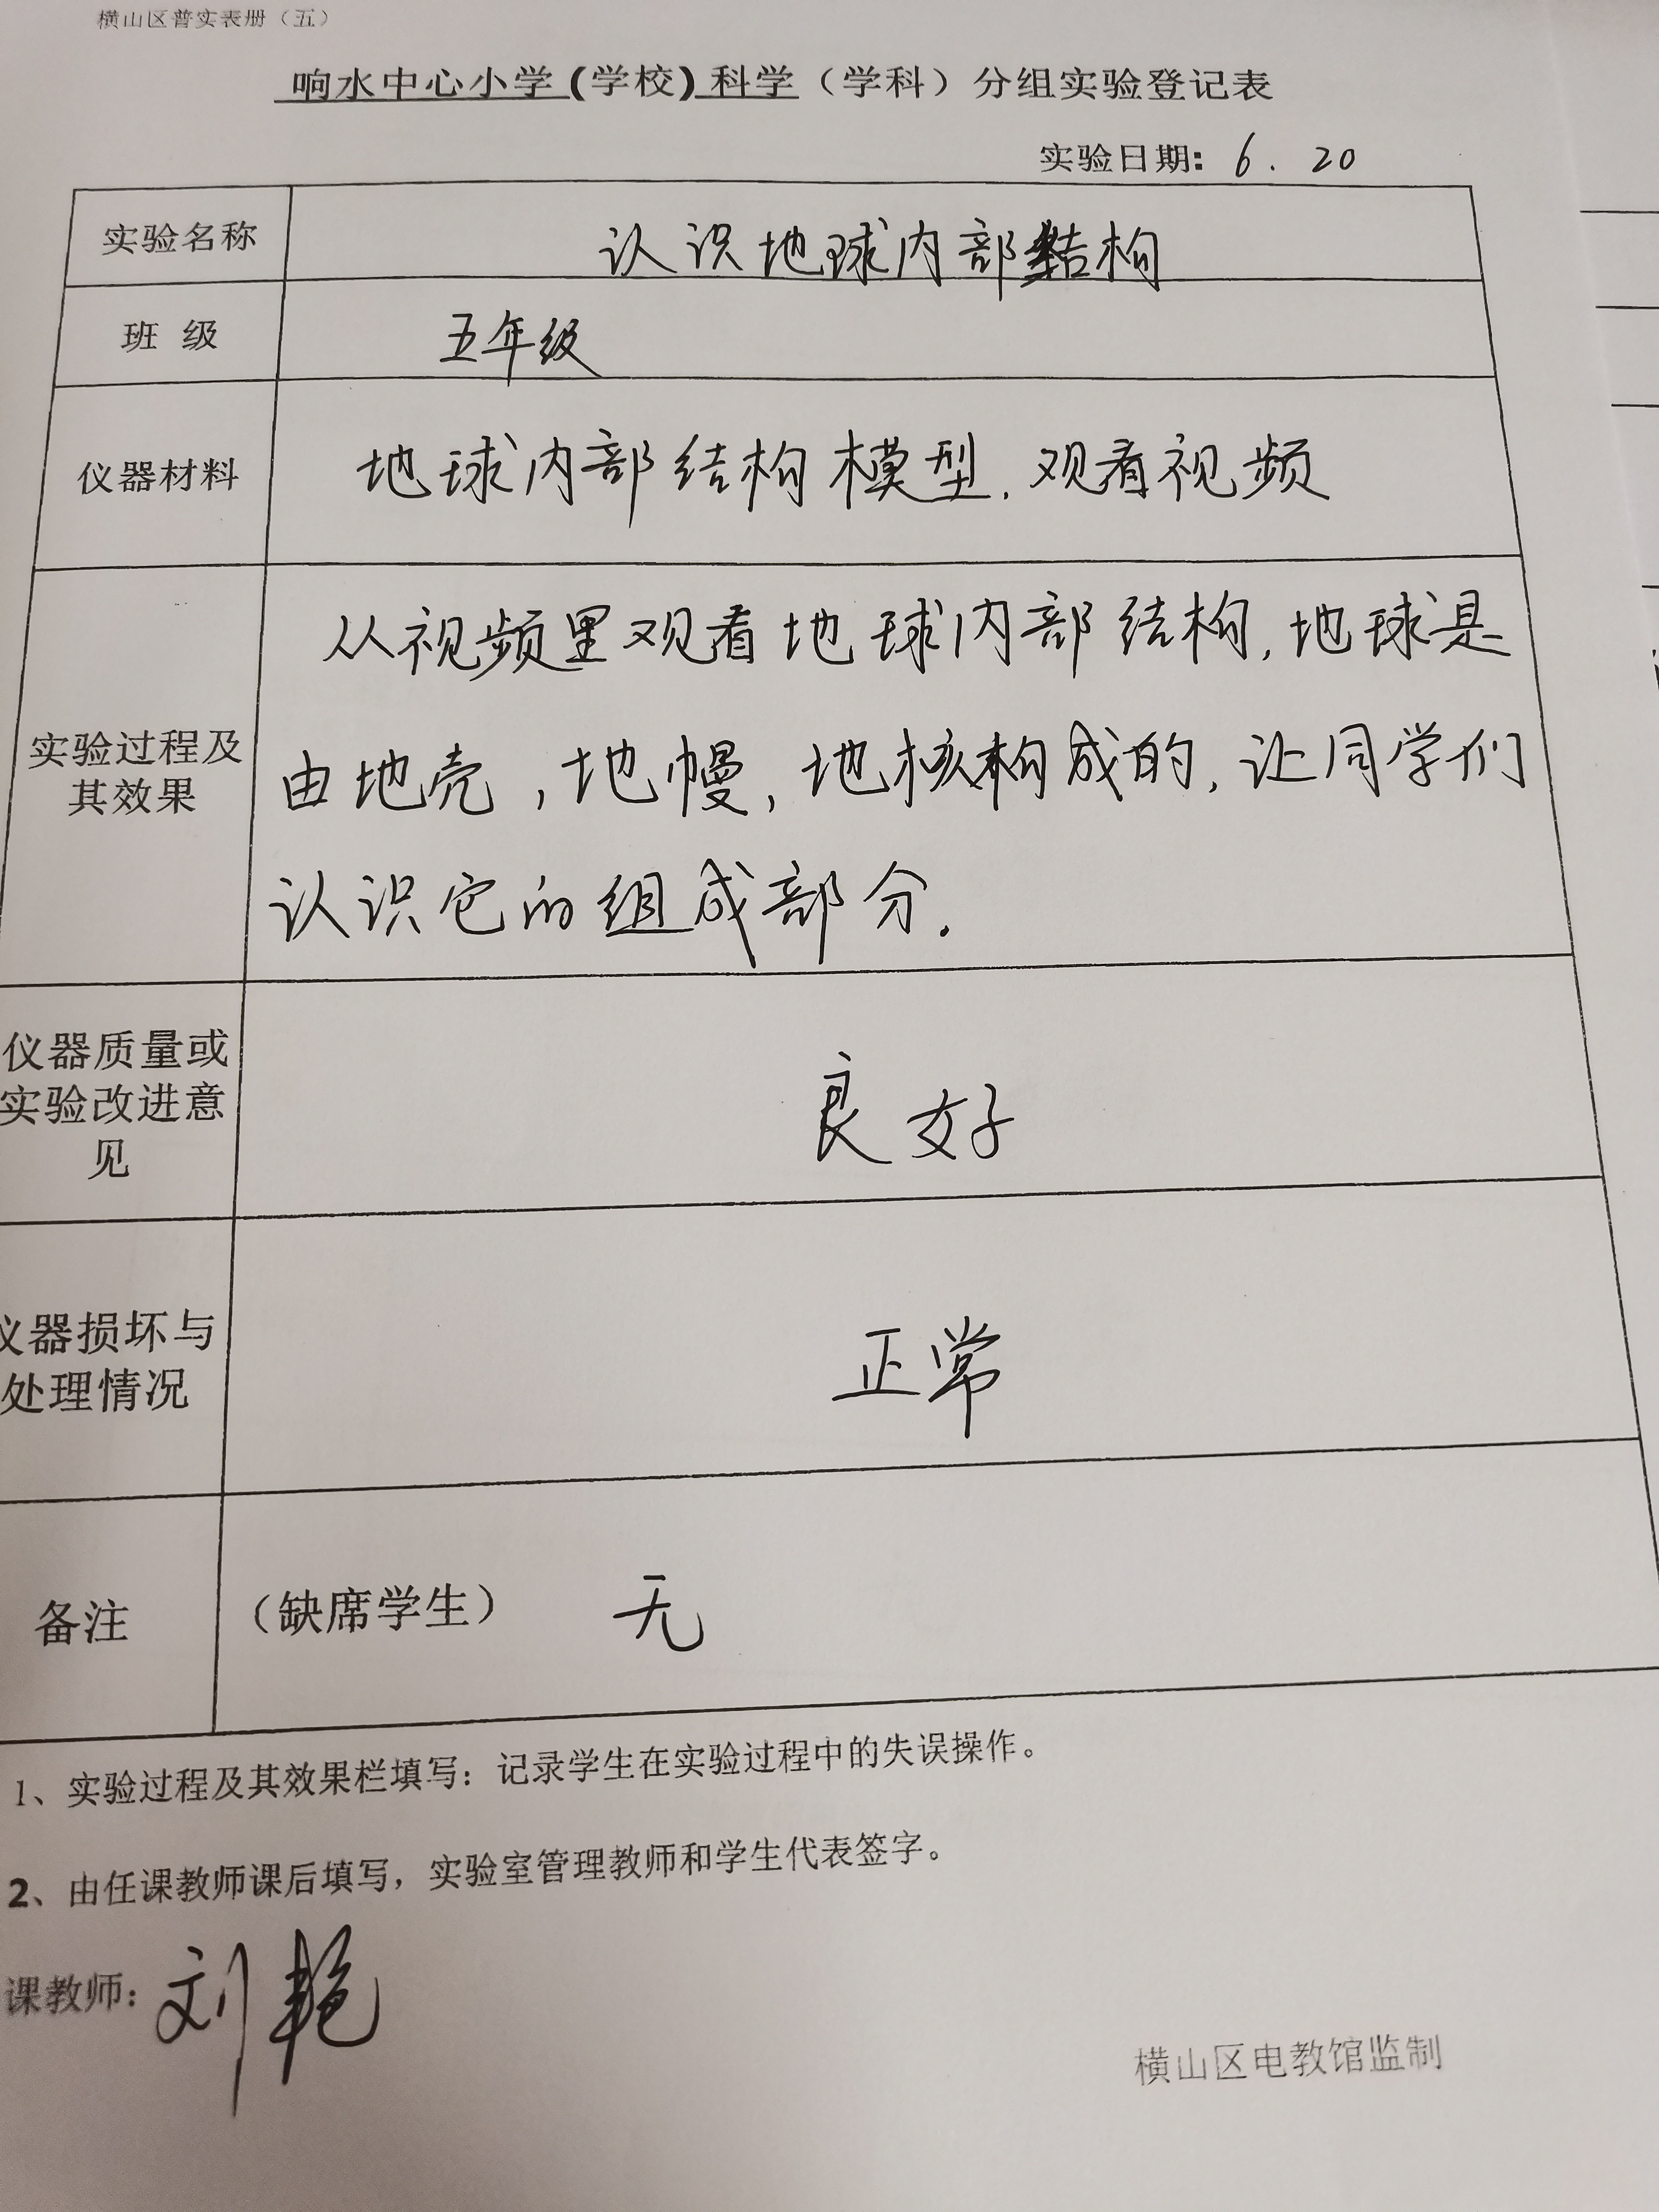 横山区普实表册（五）
响水中心小学(学校)科学（学科）分组实验登记表
实验日期: 6.20
实验名称
认识地球内部结构
班 级
五年级
仪器材料
地球内部结构模型.观看视频
实验过程及
其效果
从视频里观看地球内部结构,地球是
由地壳,地幔,地核构成的,让同学们
认识它的组成部分.
仪器质量或
实验改进意
见
良好
仪器损坏与
处理情况
正常
备注
（缺席学生） 无
1、实验过程及其效果栏填写：记录学生在实验过程中的失误操作。
2、由任课教师课后填写，实验室管理教师和学生代表签字。
课教师: 刘艳
横山区电教馆监制